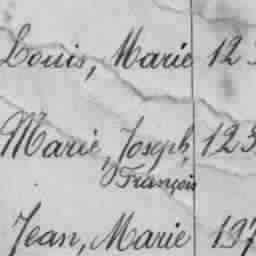 Louis, Marie 12
Marie, Joseph, 123
François
Jean, Marie 197